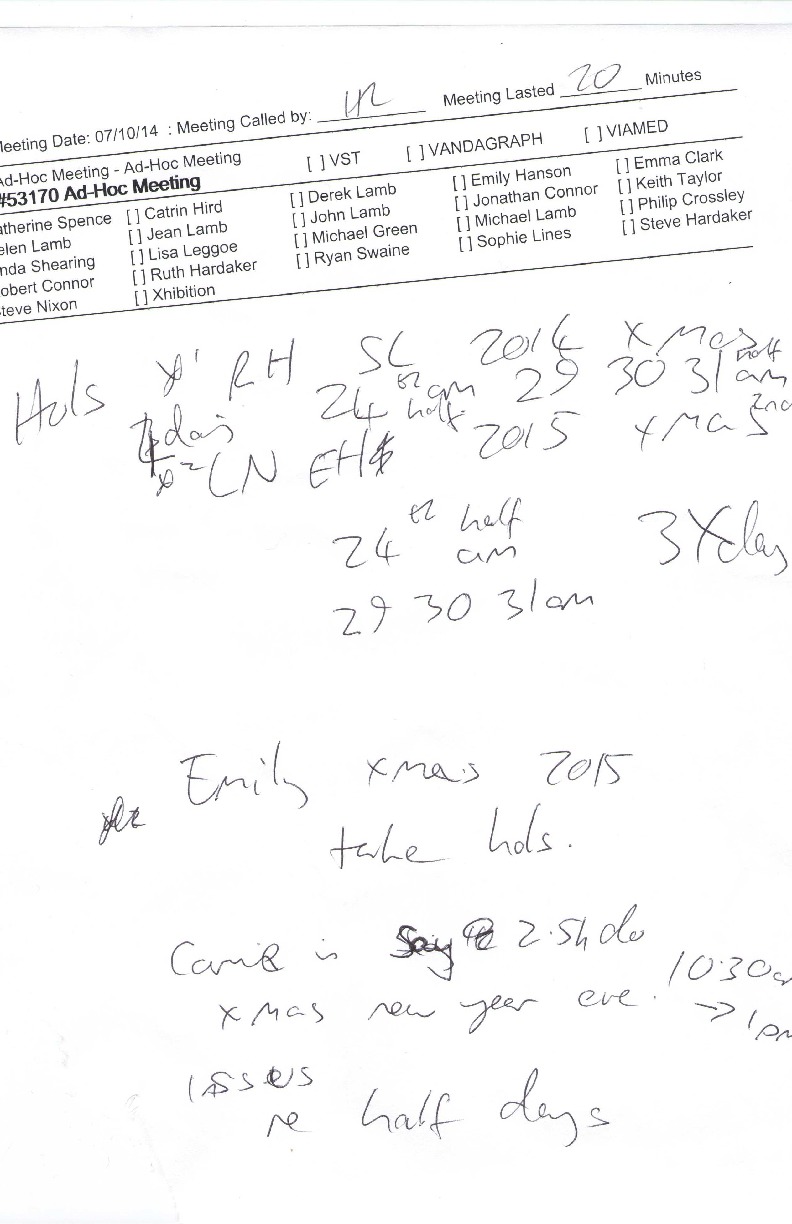 Meeting Date: 07/10/14 : Meeting Called by: Meeting Lasted 20 Minutes
Ad-Hoc Meeting - Ad-Hoc Meeting [ ] VST [ ] VANDAGRAPH [ ] VIAMED
#53170 Ad-Hoc Meeting
atherine Spence [ ] Catrin Hird [ ] Derek Lamb [ ] Emily Hanson [ ] Emma Clark
elen Lamb [ ] Jean Lamb [ ] John Lamb [ ] Jonathan Connor [ ] Keith Taylor
nda Shearing [ ] Lisa Leggoe [ ] Michael Green [ ] Michael Lamb [ ] Philip Crossley
obert Connor [ ] Ruth Hardaker [ ] Ryan Swaine [ ] Sophie Lines [ ] Steve Hardaker
teve Nixon [ ] Xhibition
Hols RH SC 2014 xmas
24 am half 29 30 31 half am
EH 2015 xmas 2nd
24 half am 3 x day
29 30 31 am
Emily xmas 2015
take hols.
2.5h do
xmas new year eve. 10:30am
→ 1pm
issues
re half days